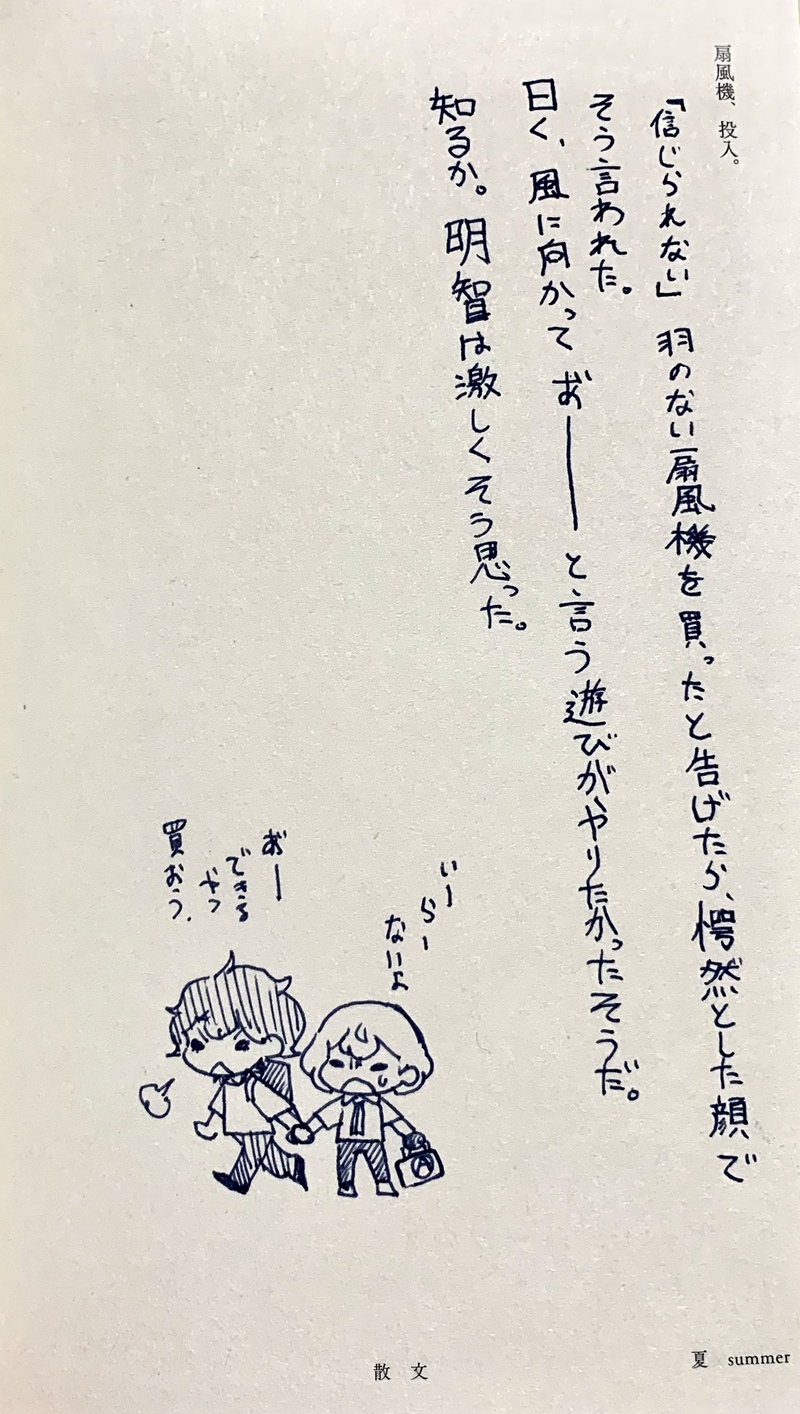 扇風機、投入。
「信じられない」羽のない扇風機を買ったと告げたら、愕然とした顔で
そう言われた。
曰く、風に向かってあ゛――と言う遊びがやりたかったそうだ。
知るか。明智は激しくそう思った。
いーらーないよ
あ゛ー
できる
やつ
買おう.
散文
夏 summer